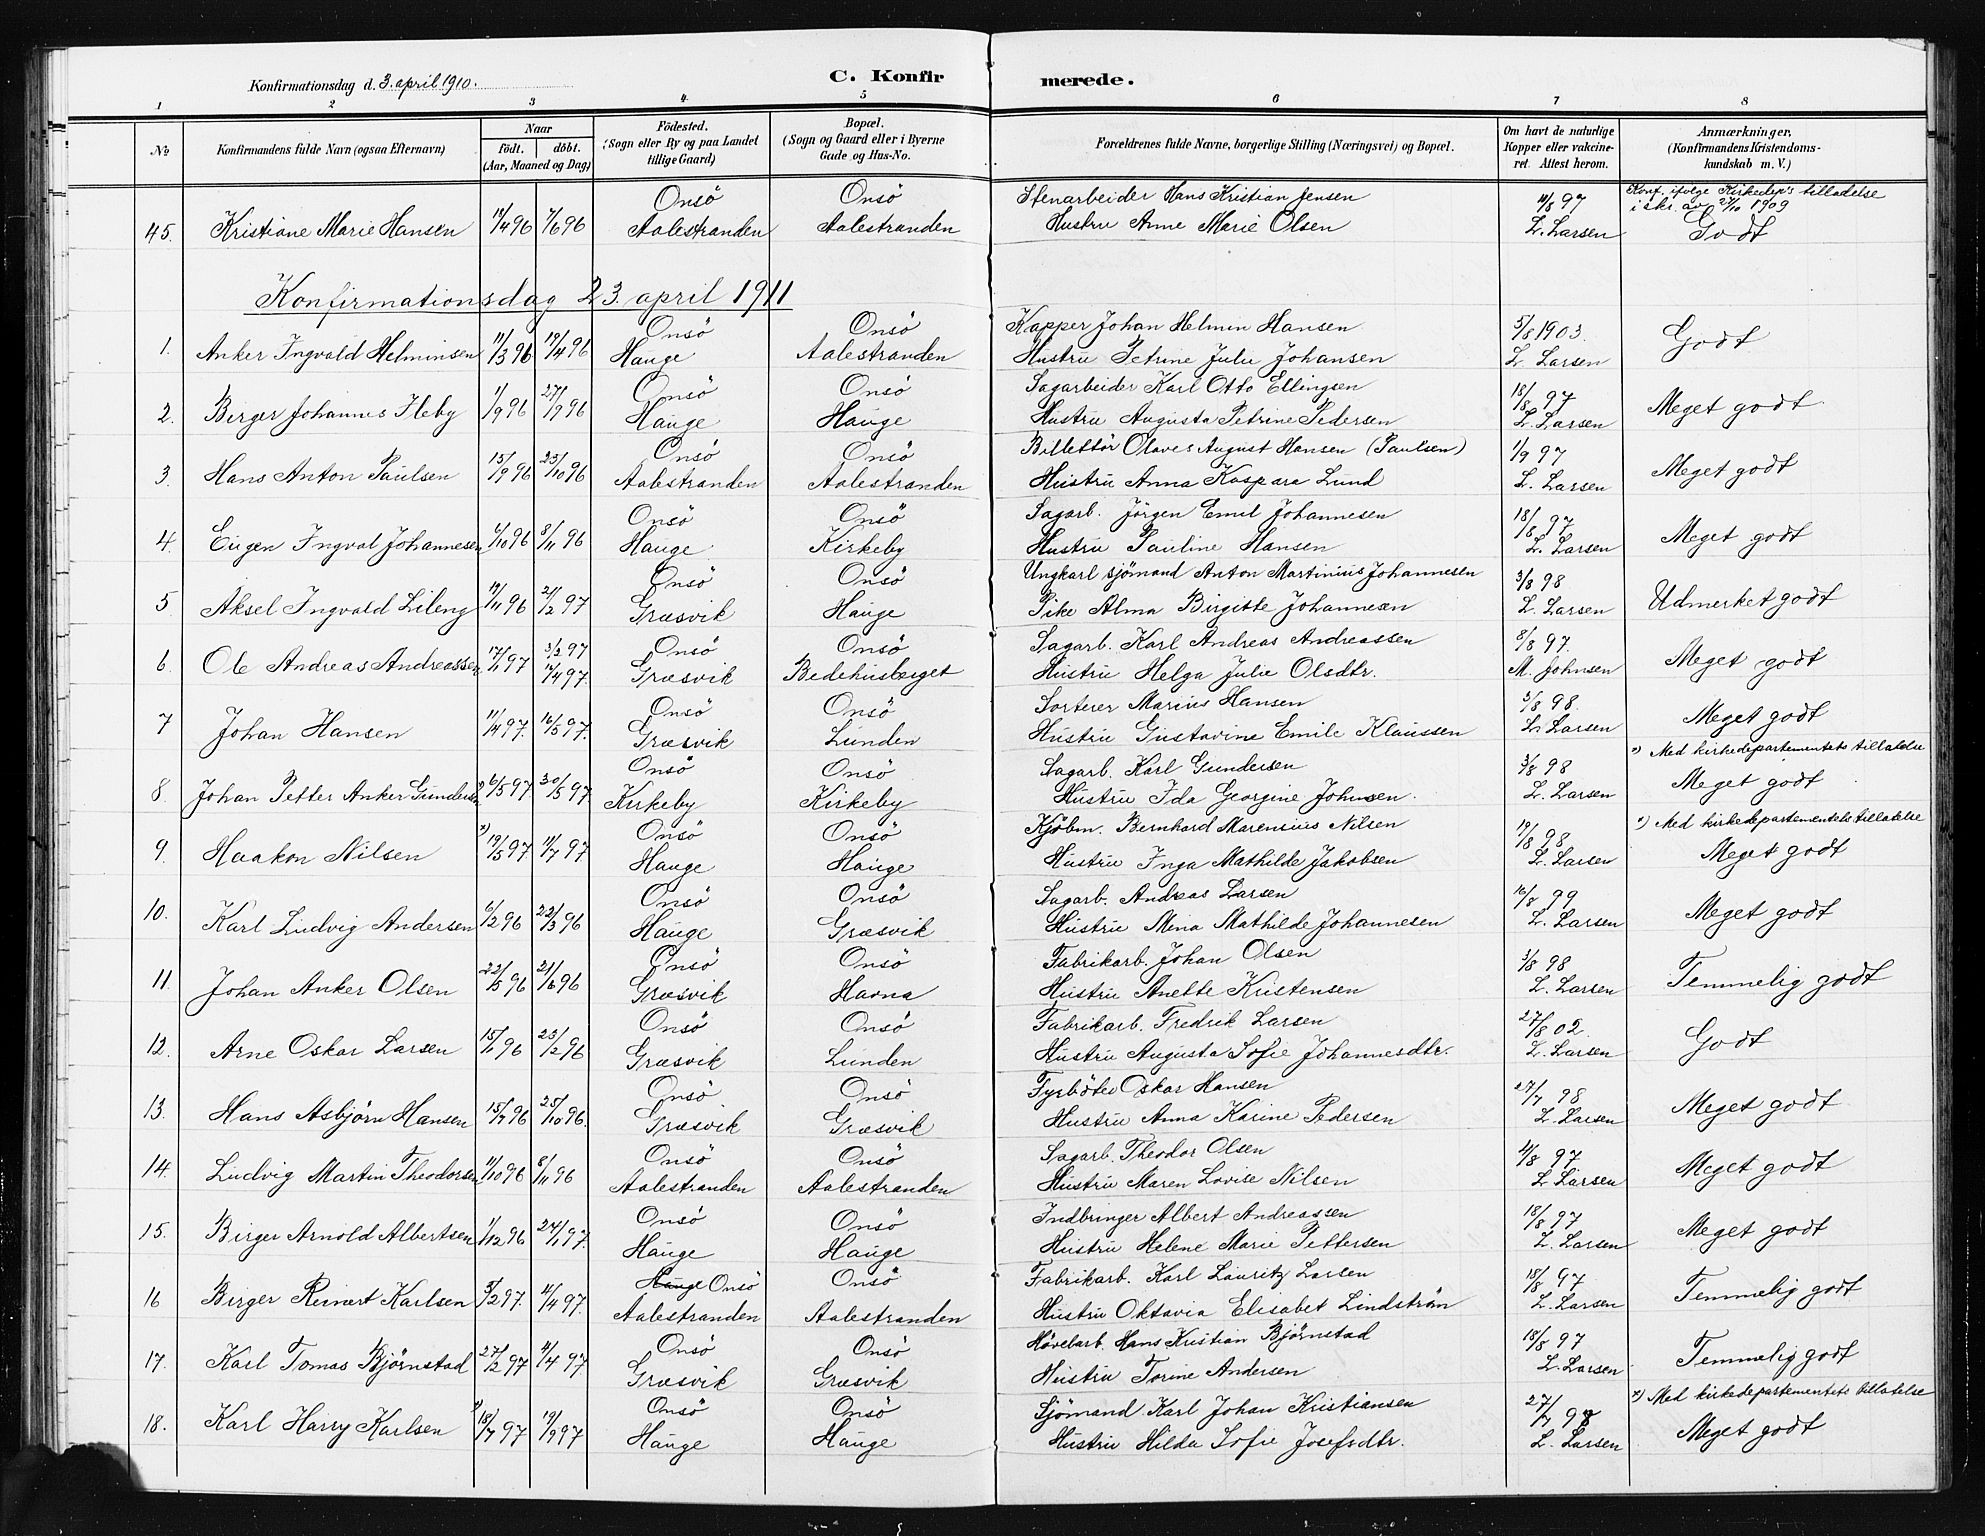 Konfirmationsdag d. 3. april 1910.
C. Konfirmerede.
1 2 3 4 5 6 7 8
№
Konfirmandens fulde Navn (ogsaa Efternavn)
Naar
født. døbt.
(Aar, Maaned og Dag)
Födested.
(Sogn eller By og paa Landet
tillige Gaard)
Bopæl.
(Sogn og Gaard eller i Byerne
Gade og Hus-No.
Forældrenes fulde Navne, borgerlige Stilling (Næringsvei) og Bopæl.
Om havt de naturlige
Kopper eller vakcineret. Attest herom.
Anmærkninger,
(Konfirmandens Kristendomskundskab m. V.)
Onsö Onsö Stenarbeider Hans Kristian Jensen 11/8 97 Konf. ifølge Kirkedep's tilladelse
i skr. av 27/10 1909
45. Kristiane Marie Hansen 14/4 96 7/6 96 Aalestranden Aalestranden Hustru Anne Marie Olsen L. Larsen Godt
Konfirmationsdag 23. april 1911
Onsö Onsö Kapper Johan Helmin Hansen 5/8 1903.
1. Anker Ingvald Helminsen 11/3 96 19/4 96 Hauge Aalestranden Hustru Petrine Julie Johansen L. Larsen Godt
Onsö Onsö Sagarbeider Karl Otto Ellingsen 18/8 97
2. Birger Johannes Fleby 1/9 96 27/9 96 Hauge Hauge Hustru Augusta Petrine Pedersen L. Larsen Meget godt
Onsö Onsö Billettör Olaves August Hansen (Paulsen) 1/9 97
3. Hans Anton Paulsen 15/9 96 23/10 96 Aalestranden Aalestranden Hustru Anna Kaspara Lund L. Larsen Meget godt
Onsö Onsö Sagarb. Jörgen Emil Johannesen 18/8 97
4. Eugen Ingval Johannesen 6/10 96 8/11 96 Hauge Kirkeby Hustru Pauline Hansen L. Larsen Meget godt
Onsö Onsö Ungkarl sjömand Anton Martinius Johannesen 3/8 98
5 Aksel Ingvald Lileng 19/11 96 21/2 97 Græsvik Hauge Pike Alma Birgitte Johannesen L. Larsen Udmerket godt
3/2 97 Onsö Onsö Sagarb. Karl Andreas Andreassen 8/8 97.
6. Ole Andreas Andreassen 17/1 97 19/4 97. Græsvik Bedehusberget Hustru Helga Julie Olsdtr. M. Johnsen Meget godt
Onsö Onsö Sorterer Marius Hansen 3/8 98.
7 Johan Hansen 11/4 97. 16/5 97. Græsvik Lunden Hustru Gustavine Emile Klaussen L. Larsen Meget godt
Onsö Onsö Sagarb. Karl Gundersen 3/8 98 *) Med kirkedepartementets tillatelse
8 Johan Petter Anker Gundersen 6/5 97 30/5 97 Kirkeby Kirkeby Hustru Ida Georgine Johnsen. L. Larsen Meget godt
Onsö Onsö Kjöbm. Bernhard Marensius Nilsen 19/8 98 *) Med kirkedepartementets tillatelse
9. Haakon Nilsen *) 19/5 97 11/7 97 Hauge Hauge Hustru Inga Mathilde Jakobsen L. Larsen Meget godt
Onsö Onsö Sagarb. Andreas Larsen 16/8 99
10. Karl Ludvig Andersen 6/2 96 22/3 96 Hauge Græsvik Hustru Mina Mathilde Johannesen L. Larsen Meget godt
Onsö Onsö Fabrikarb. Johan Olsen 3/8 98
11. Johan Anker Olsen 22/5 96 21/6 96 Græsvik Havna Hustru Anette Kristensen L. Larsen Temmelig godt
Onsö Onsö Fabrikarb. Fredrik Larsen 27/8 02.
12. Arne Oskar Larsen 15/1 96 23/2 96 Græsvik Lunden Hustru Augusta Sofie Johannesdtr. L. Larsen Godt
Onsö Onsö Fyrböter Oskar Hansen 27/7 98
13. Hans Asbjörn Hansen 15/7 96 25/10 96. Græsvik Græsvik Hustru Anna Karine Pedersen L. Larsen Meget godt
Onsö Onsö Sagarb. Theodor Olsen 11/8 97
14. Ludvig Martin Theodorsen 11/10 96 8/11 96 Aalestranden Aalestranden Hustru Maren Lovise Nilsen L. Larsen Meget godt
Onsö Onsö Indbringer Albert Andreassen 18/8 97
15. Birger Arnold Albertsen 1/12 96 24/1 97. Hauge Hauge Hustru Helene Marie Pettersen L. Larsen Meget godt
Hauge Onsö Onsö Fabrikarb. Karl Lauritz Larsen 18/8 97
16 Birger Reinert Karlsen 3/2 97. 11/4 97. Aalestranden Aalestranden Hustru Oktavia Elisabet Lindström L. Larsen Temmelig godt
Onsö Onsö Hövelarb. Hans Kristian Björnstad 18/8 97
17. Karl Tomas Björnstad 27/2 97 11/4 97. Græsvik Græsvik Hustru Torine Andersen L. Larsen Temmelig godt
Onsö Onsö Sjömand Karl Johan Kristiansen 27/7 98 *) Med kirkedepartementets tillatelse
18. Karl Harry Karlsen *) 18/7 97 19/9 97 Hauge Hauge Hustru Hilda Sofie Josefsdtr. L. Larsen Meget godt